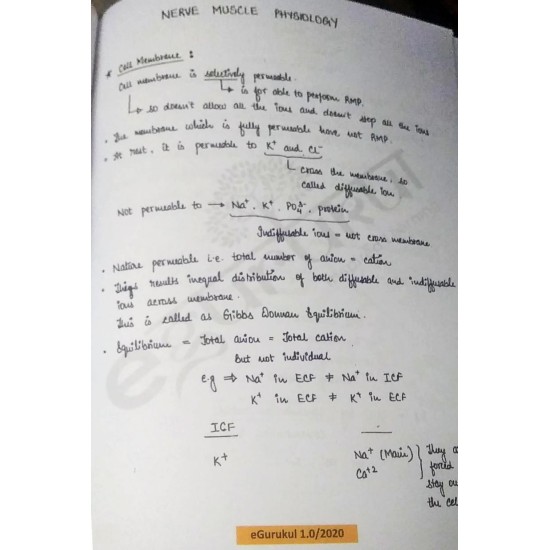 NERVE MUSCLE PHYSIOLOGY
* Cell Membrane :
Cell membrane is selectively permeable.
↳ is for able to perform RMP.
↳ so doesn't allow all the ions and doesn't stop all the ions
• The membrane which is fully permeable have not RMP.
• At rest, it is permeable to K+ and Cl-
↳ cross the membrane, so
called diffusable ion
Not permeable to → Na+, K+, PO4 3-, protein
Indiffusable ions = not cross membrane
• Nature permeable i.e. total number of anion = cation
• Things results inequal distribution of both diffusable and indiffusable
ions across membrane.
This is called as Gibbs Donnan Equilibrium.
• Equilibrium = Total anion = Total cation
But not individual
e.g ⇒ Na+ in ECF ≠ Na+ in ICF
K+ in ECF ≠ K+ in ECF
ICF
K+
Na+ (Main)
Ca+2
They
forced
stay
the
eGurukul 1.0/2020